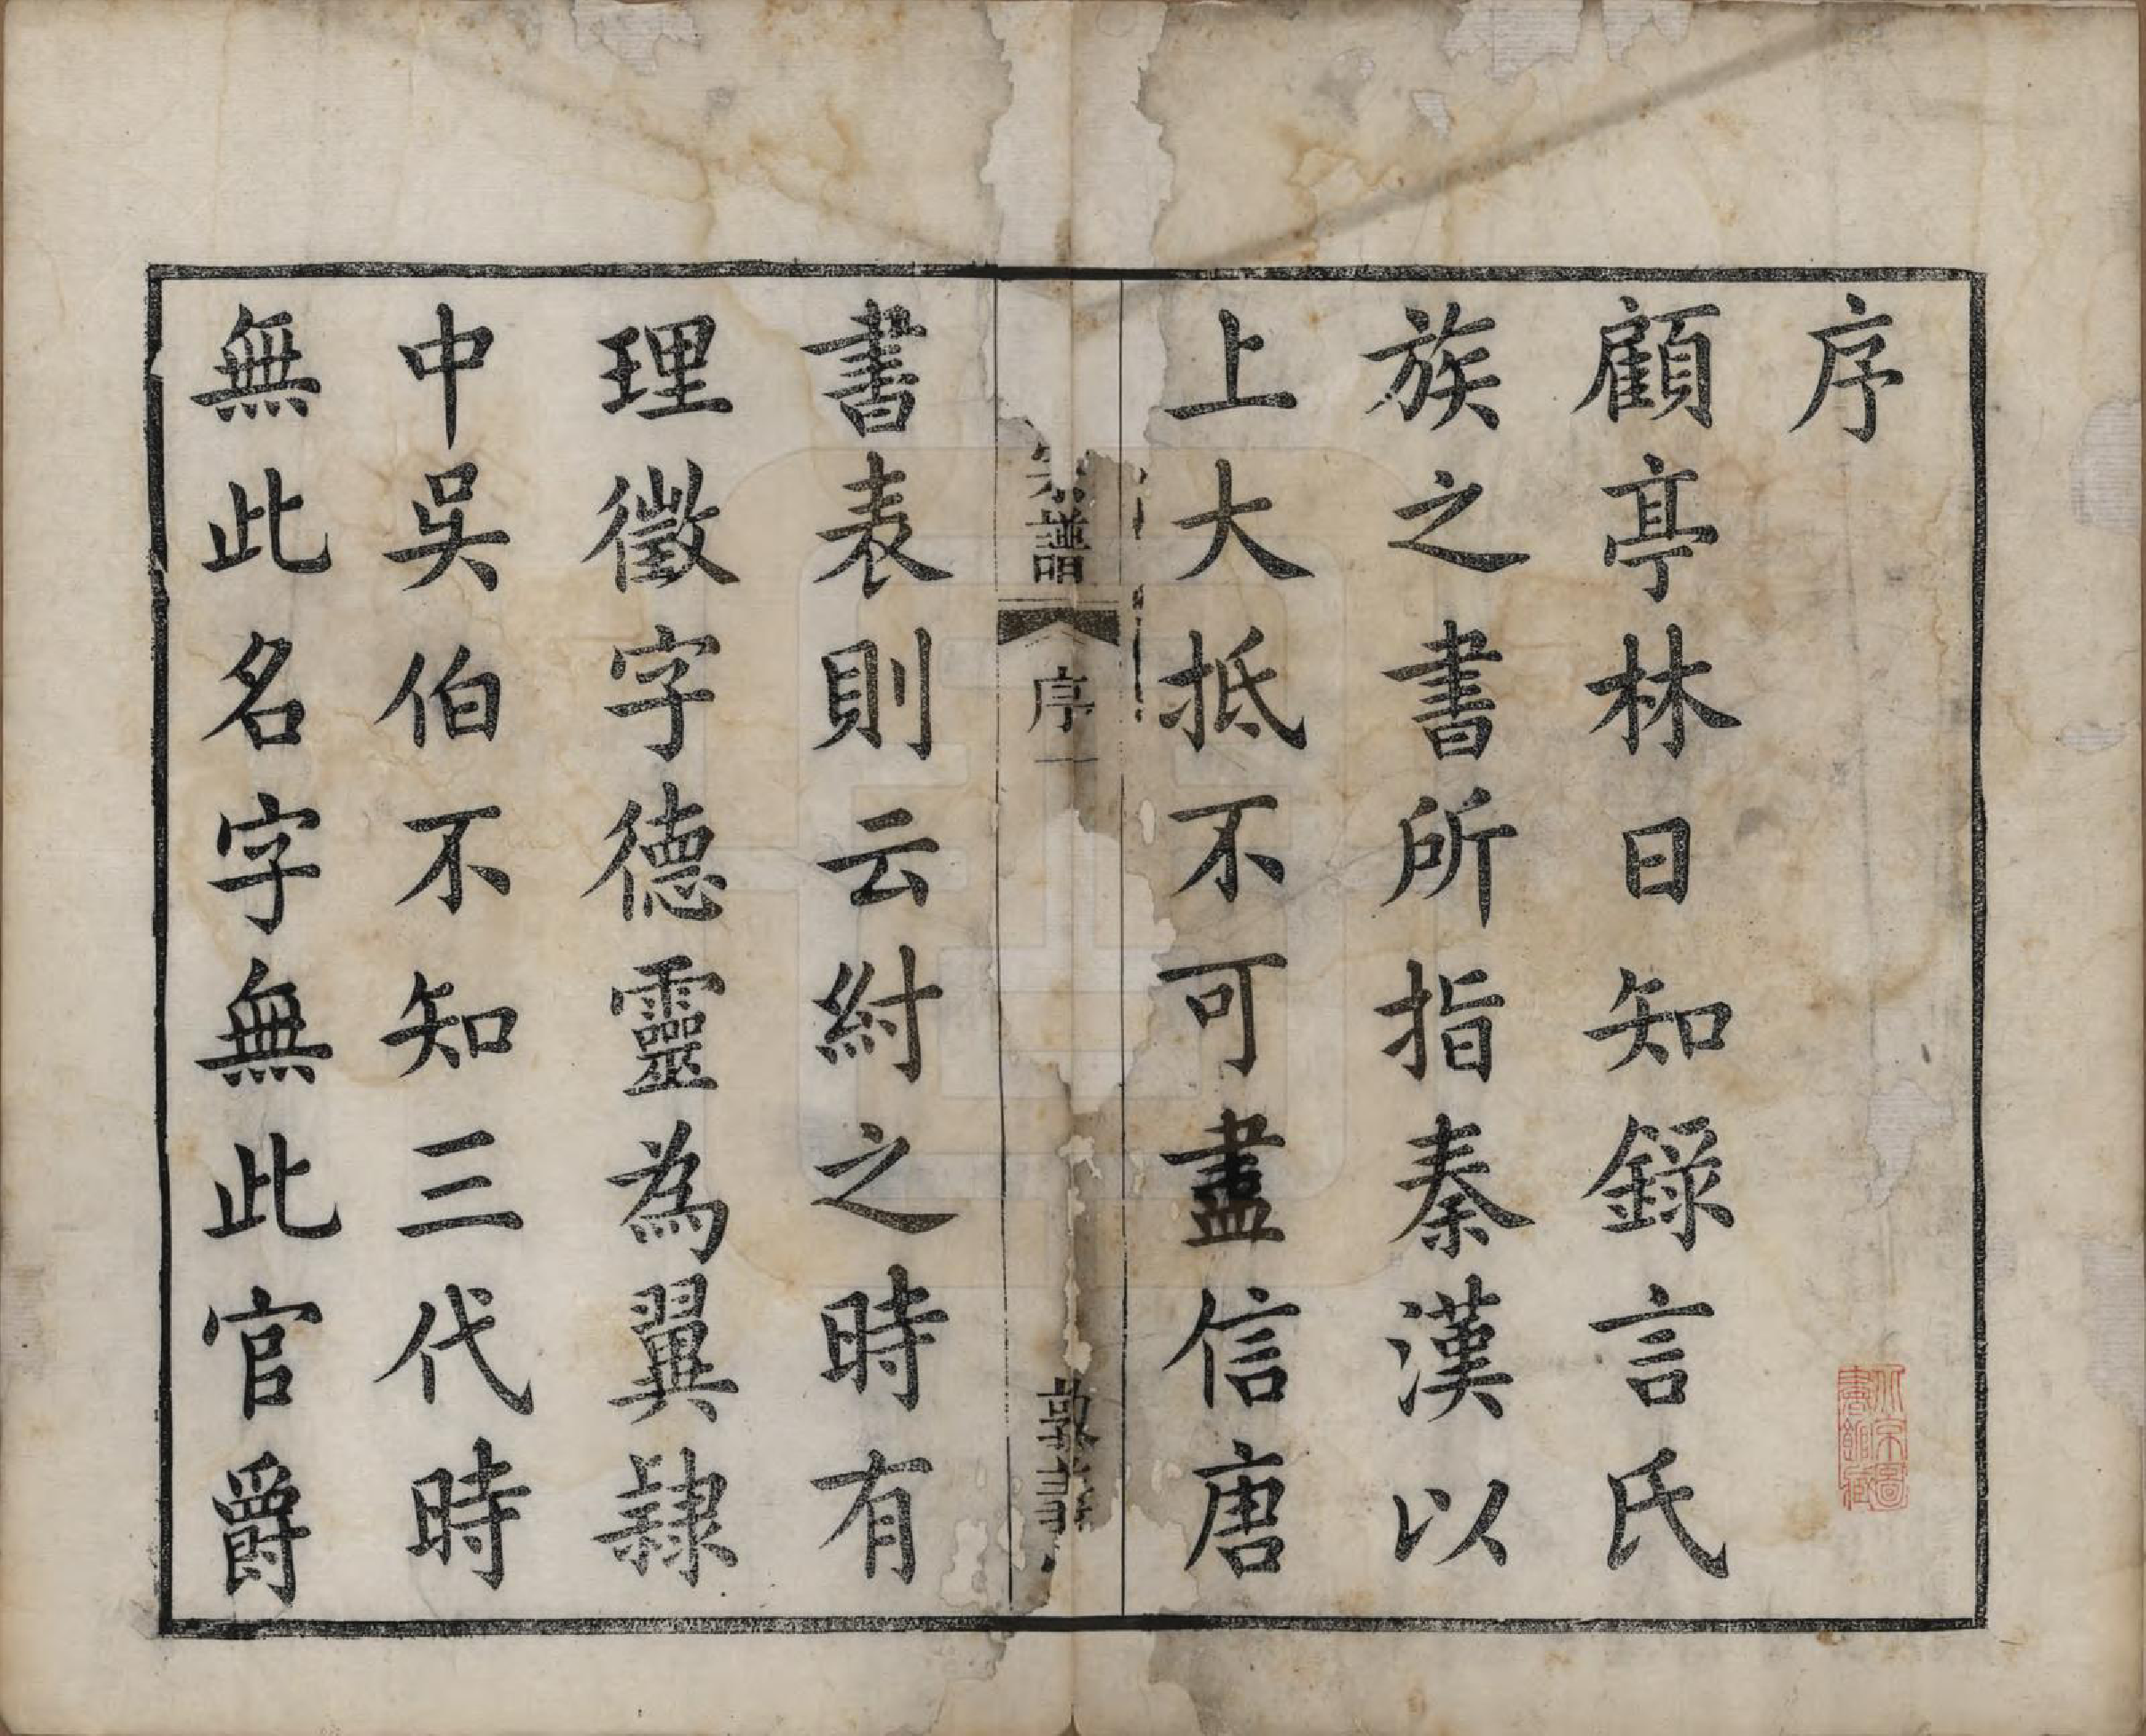 序
顧亭林日知錄言氏
族之書所指秦漢以
上大抵不可盡信唐
譜
序
一
敦
書表則云紂之時有
理徵字德靈為翼隸
中吳伯不知三代時
無此名字無此官爵